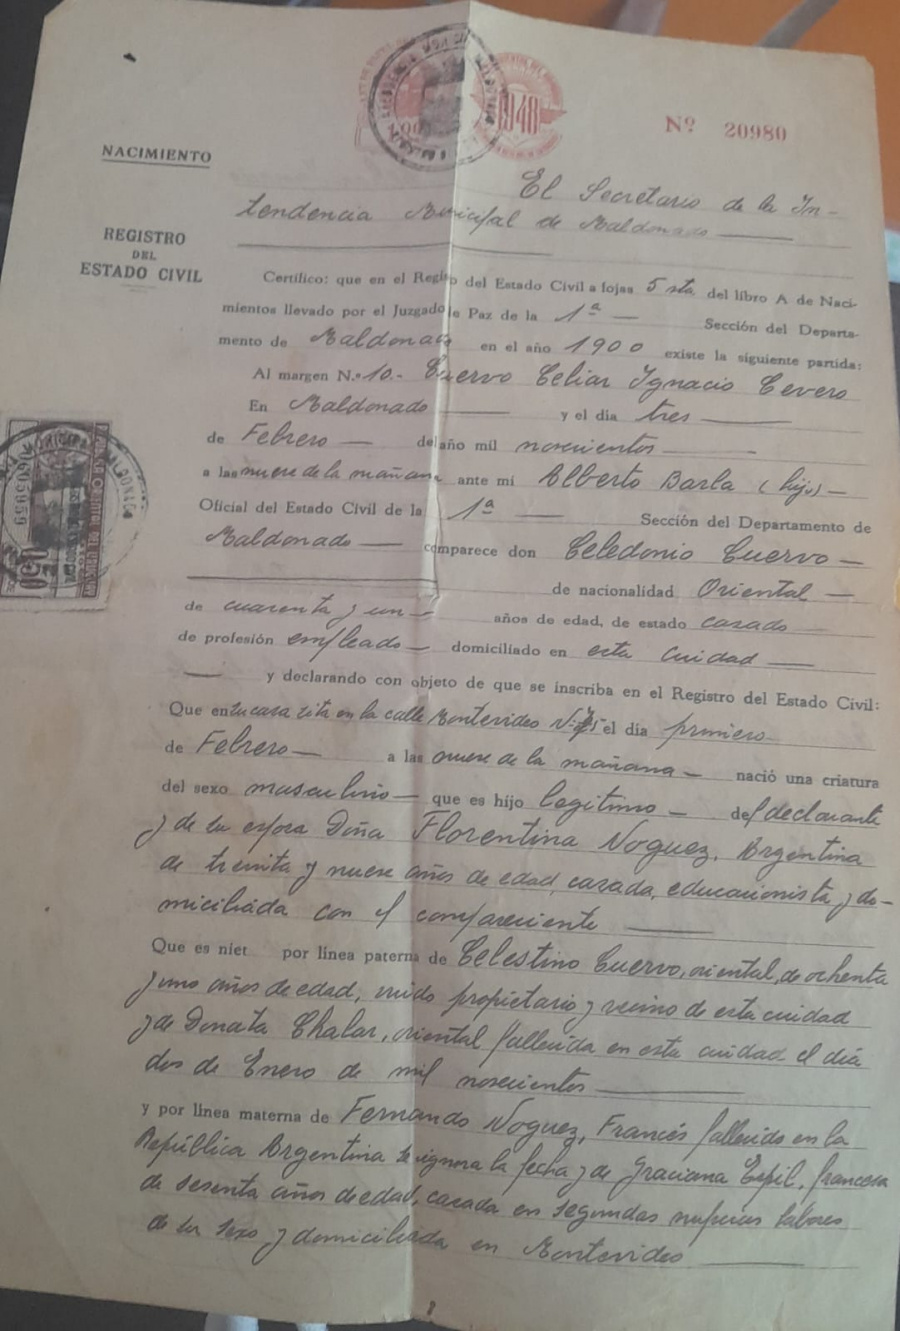 1948
Nº 20980
NACIMIENTO
REGISTRO
DEL
ESTADO CIVIL
El Secretario de la In-
tendencia Municipal de Maldonado
Certifico: que en el Registro del Estado Civil a fojas 5 vta del libro A de Naci-
mientos llevado por el Juzgado de Paz de la 1ª Sección del Departa-
mento de Maldonado en el año 1900 existe la siguiente partida:
Al margen N.º 10.- Cuervo Celiar Ignacio Cevero
En Maldonado y el dia tres
de Febrero del año mil novecientos
a las nueve de la mañana ante mi Alberto Barla (hijo)
Oficial del Estado Civil de la 1ª Sección del Departamento de
Maldonado comparece don Celedonio Cuervo
de nacionalidad Oriental
de cuarenta y un años de edad, de estado casado
de profesión empleado domiciliado en esta ciudad
y declarando con objeto de que se inscriba en el Registro del Estado Civil:
Que en su casa sita en la calle Montevideo el dia primero
de Febrero a las nueve de la mañana nació una criatura
del sexo masculino que es hijo legitimo del declarante
y de su esposa Doña Florentina Noguez, Argentina
de treinta y nueve años de edad, casada, educacionista y do-
miciliada con el compareciente
Que es niet por línea paterna de Celestino Cuervo, oriental, de ochenta
y uno años de edad, viudo propietario y vecino de esta ciudad
y de Donata Chalar, oriental fallecida en esta ciudad el día
dos de Enero de mil novecientos
y por línea materna de Fernando Noguez, Francés fallecido en la
República Argentina se ignora la fecha y de Graciana Espil, francesa
de sesenta años de edad, casada en segundas nupcias labores
de su sexo y domiciliada en Montevideo